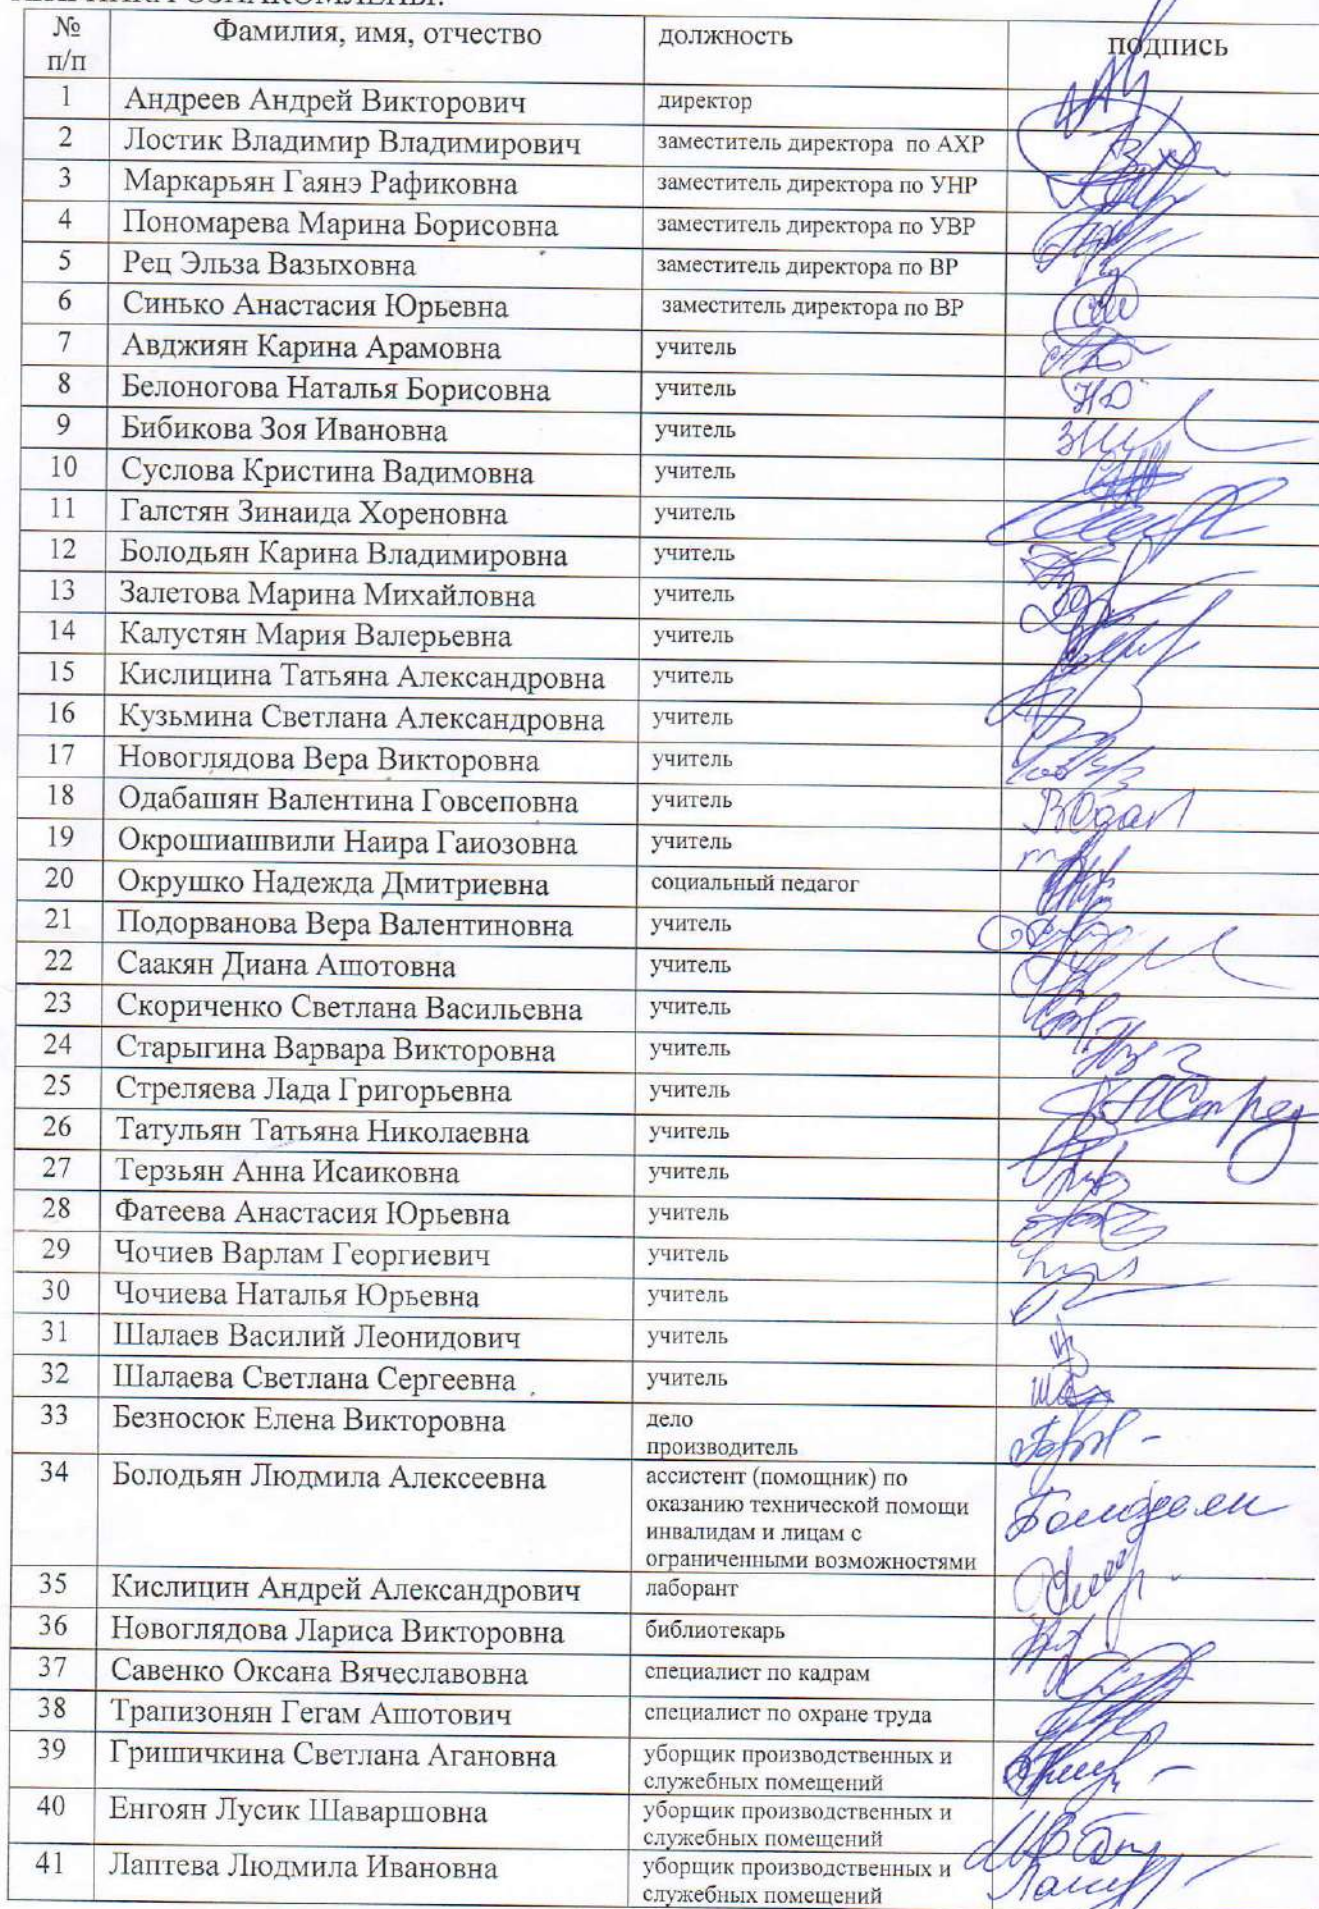 ОЗНАКОМЛЕНЫ:
№ п/п Фамилия, имя, отчество должность подпись
1 Андреев Андрей Викторович директор
2 Лостик Владимир Владимирович заместитель директора по АХР
3 Маркарьян Гаянэ Рафиковна заместитель директора по УНР
4 Пономарева Марина Борисовна заместитель директора по УВР
5 Рец Эльза Вазыховна заместитель директора по ВР
6 Синько Анастасия Юрьевна заместитель директора по ВР
7 Авджиян Карина Арамовна учитель
8 Белоногова Наталья Борисовна учитель
9 Бибикова Зоя Ивановна учитель
10 Суслова Кристина Вадимовна учитель
11 Галстян Зинаида Хореновна учитель
12 Болодьян Карина Владимировна учитель
13 Залетова Марина Михайловна учитель
14 Калустян Мария Валерьевна учитель
15 Кислицина Татьяна Александровна учитель
16 Кузьмина Светлана Александровна учитель
17 Новоглядова Вера Викторовна учитель
18 Одабашян Валентина Говсеповна учитель
19 Окрошиашвили Наира Гаиозовна учитель
20 Окрушко Надежда Дмитриевна социальный педагог
21 Подорванова Вера Валентиновна учитель
22 Саакян Диана Ашотовна учитель
23 Скориченко Светлана Васильевна учитель
24 Старыгина Варвара Викторовна учитель
25 Стреляева Лада Григорьевна учитель
26 Татульян Татьяна Николаевна учитель
27 Терзьян Анна Исаиковна учитель
28 Фатеева Анастасия Юрьевна учитель
29 Чочиев Варлам Георгиевич учитель
30 Чочиева Наталья Юрьевна учитель
31 Шалаев Василий Леонидович учитель
32 Шалаева Светлана Сергеевна учитель
33 Безносюк Елена Викторовна дело
производитель
34 Болодьян Людмила Алексеевна ассистент (помощник) по
оказанию технической помощи
инвалидам и лицам с
ограниченными возможностями
Болодьян
35 Кислицин Андрей Александрович лаборант
36 Новоглядова Лариса Викторовна библиотекарь
37 Савенко Оксана Вячеславовна специалист по кадрам
38 Трапизонян Гегам Ашотович специалист по охране труда
39 Гришичкина Светлана Агановна уборщик производственных и
служебных помещений
40 Енгоян Лусик Шаваршовна уборщик производственных и
служебных помещений
41 Лаптева Людмила Ивановна уборщик производственных и
служебных помещений